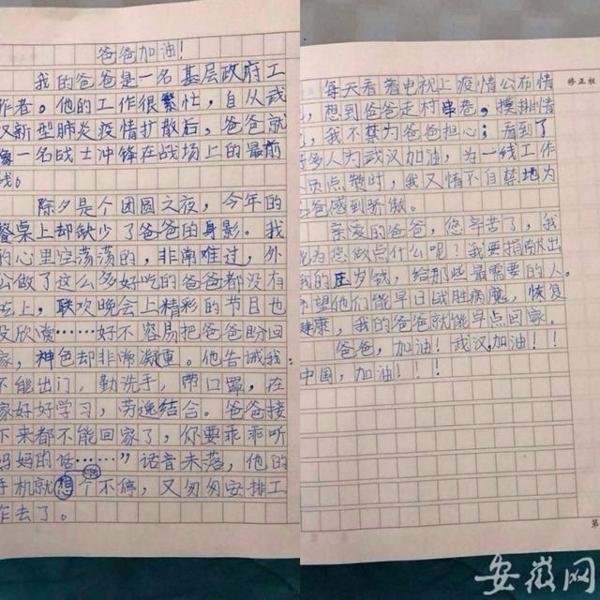 爸爸加油!
我的爸爸是一名基层政府工
作者。他的工作很繁忙,自从武
汉新型肺炎疫情扩散后,爸爸就
像一名战士冲锋在战场上的最前
线。
除夕是个团圆之夜,今年的
餐桌上却缺少了爸爸的身影。我
的心里空荡荡的,非常难过,外
公做了这么多好吃的爸爸都没有
吃上,联欢晚会上精彩的节目也
没欣赏……好不容易把爸爸盼回
家,神色却非常凝重。他告诫我:
不能出门,勤洗手,带口罩,在
家好好学习,劳逸结合。爸爸接
下来都不能回家了,你要乖乖听
妈妈的话……”话音未落,他的
手机就想个不停,又匆匆安排工
作去了。
修正栏
每天看着电视上疫情公布情
,想到爸爸走村串巷,摸排情
,我不禁为爸爸担心;看到了
好多人为武汉加油,为一线工作
人员点赞时,我又情不自禁地为
爸爸感到骄傲。
亲爱的爸爸,您辛苦了,我
能为您做点什么呢?我要捐献出
我的压岁钱,给那些最需要的人。
希望他们能早日战胜病魔,恢复
健康,我的爸爸就能早点回家。
爸爸,加油!武汉,加油!!
中国,加油!!!
第
安徽网